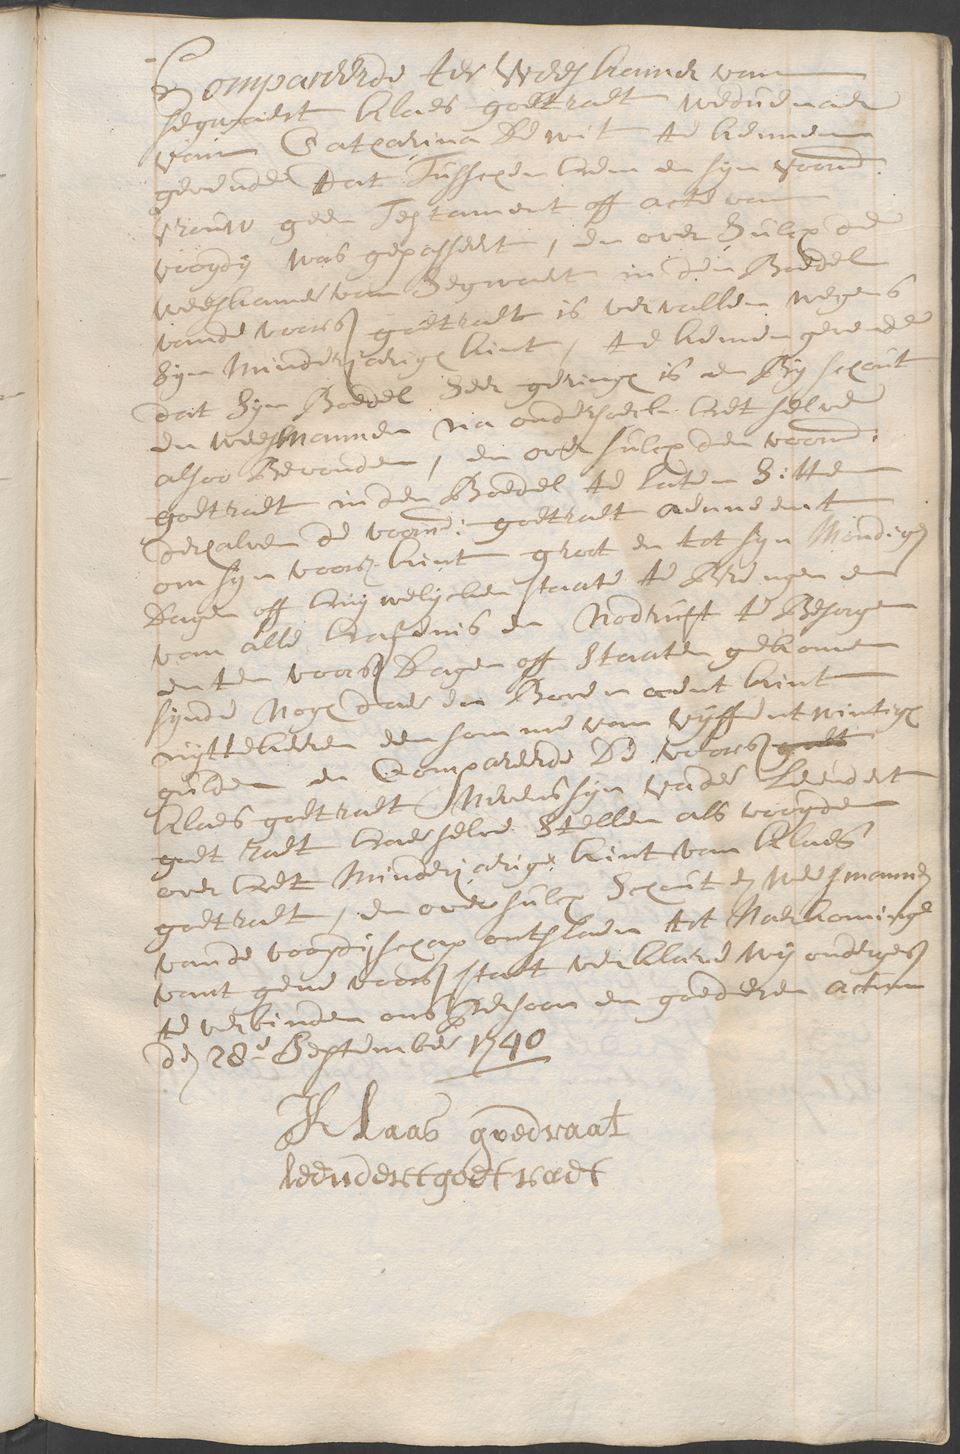 Compareerde ter Weeskamer van
segwaert klaes goetraet weduenaer
van Catharina de wit te kennen
gevende dat Tusschen hem en syn voorn:
vrouw geen Testament off acte van
voogdij was gepasseert, en over Sulcx de
weeskamer van Segwaert in den Boedel
vande voors goetraet is vervallen wegens
Syn Minderjarigh kint, te kennen gevende
dat Syn Boedel Seer geringh is en By schout
en weesmannen na ondersoeck het selve
alsoo Bevonden, en over sulcx den voorn:
goetraet in den Boedel te laten Sitten
derhalven de voorn: goetraet aenneemt
om syn voors kint groot en tot syn Mondige
dagen off huywelycken staate te Brengen en
van alle en Nodruft te Besorgen
en ten voors dagen off Staaten gekomen
synde Nogh daer en Boven aent kint
uijttekeeren een somme van vyffentwintigh
gulden en Compareerde de voors goet
klaes goetraet Nevens syn vader Leendert
goet raet haer selve Stellen als voogden
over het Minderjarige kint van klaes
goetraet, en over sulcx Schout en weesmannen
vande voogdijschap ontslaen tot Naerkominge
vant gene voors staet verklare wij onderges
te verbinden ons Persoon en goederen actum
den 28e September 1740
Klaas goedraat
leendert goetraet